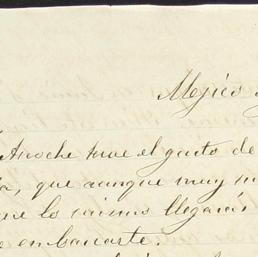 Mejico
Anoche tuve el gusto de
que aunque muy
que lo mismo llegaran
embarcarte.